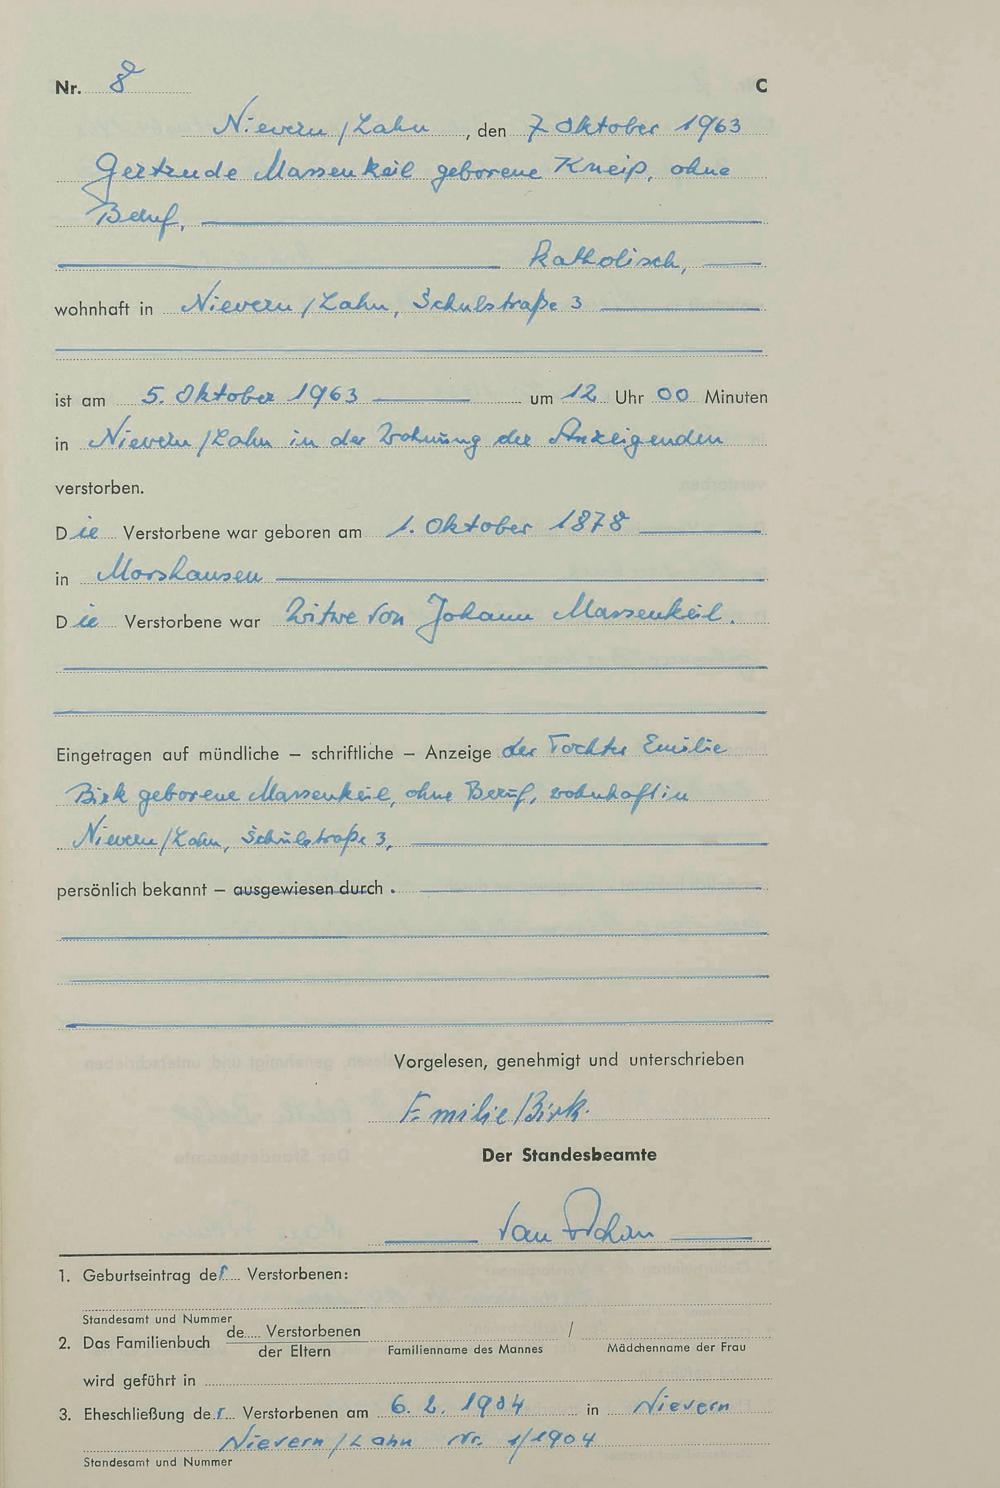 Nr. 8 C
Nievern/Lahn, den 7. Oktober 1963
Gertrude Massenkeil geborene Kneip, ohne
Beruf,
katholisch,
wohnhaft in Nievern/Lahn, Schulstraße 3
ist am 5. Oktober 1963 um 12 Uhr 00 Minuten
in Nievern/Lahn in der Wohnung der Anzeigenden
verstorben.
Die Verstorbene war geboren am 1. Oktober 1878
in Morshausen
Die Verstorbene war Witwe von Johann Massenkeil.
Eingetragen auf mündliche – schriftliche – Anzeige der Tochter Emilie
Birk geborene Massenkeil, ohne Beruf, wohnhaft in
Nievern/Lahn, Schulstraße 3,
persönlich bekannt – ausgewiesen durch .
Vorgelesen, genehmigt und unterschrieben
Emilie Birk.
Der Standesbeamte
van
1. Geburtseintrag der Verstorbenen:
Standesamt und Nummer
2. Das Familienbuch de Verstorbenen /
der Eltern Familienname des Mannes Mädchenname der Frau
wird geführt in
3. Eheschließung der Verstorbenen am 6. 2. 1904 in Nievern
Nievern/Lahn Nr. 1/1904
Standesamt und Nummer